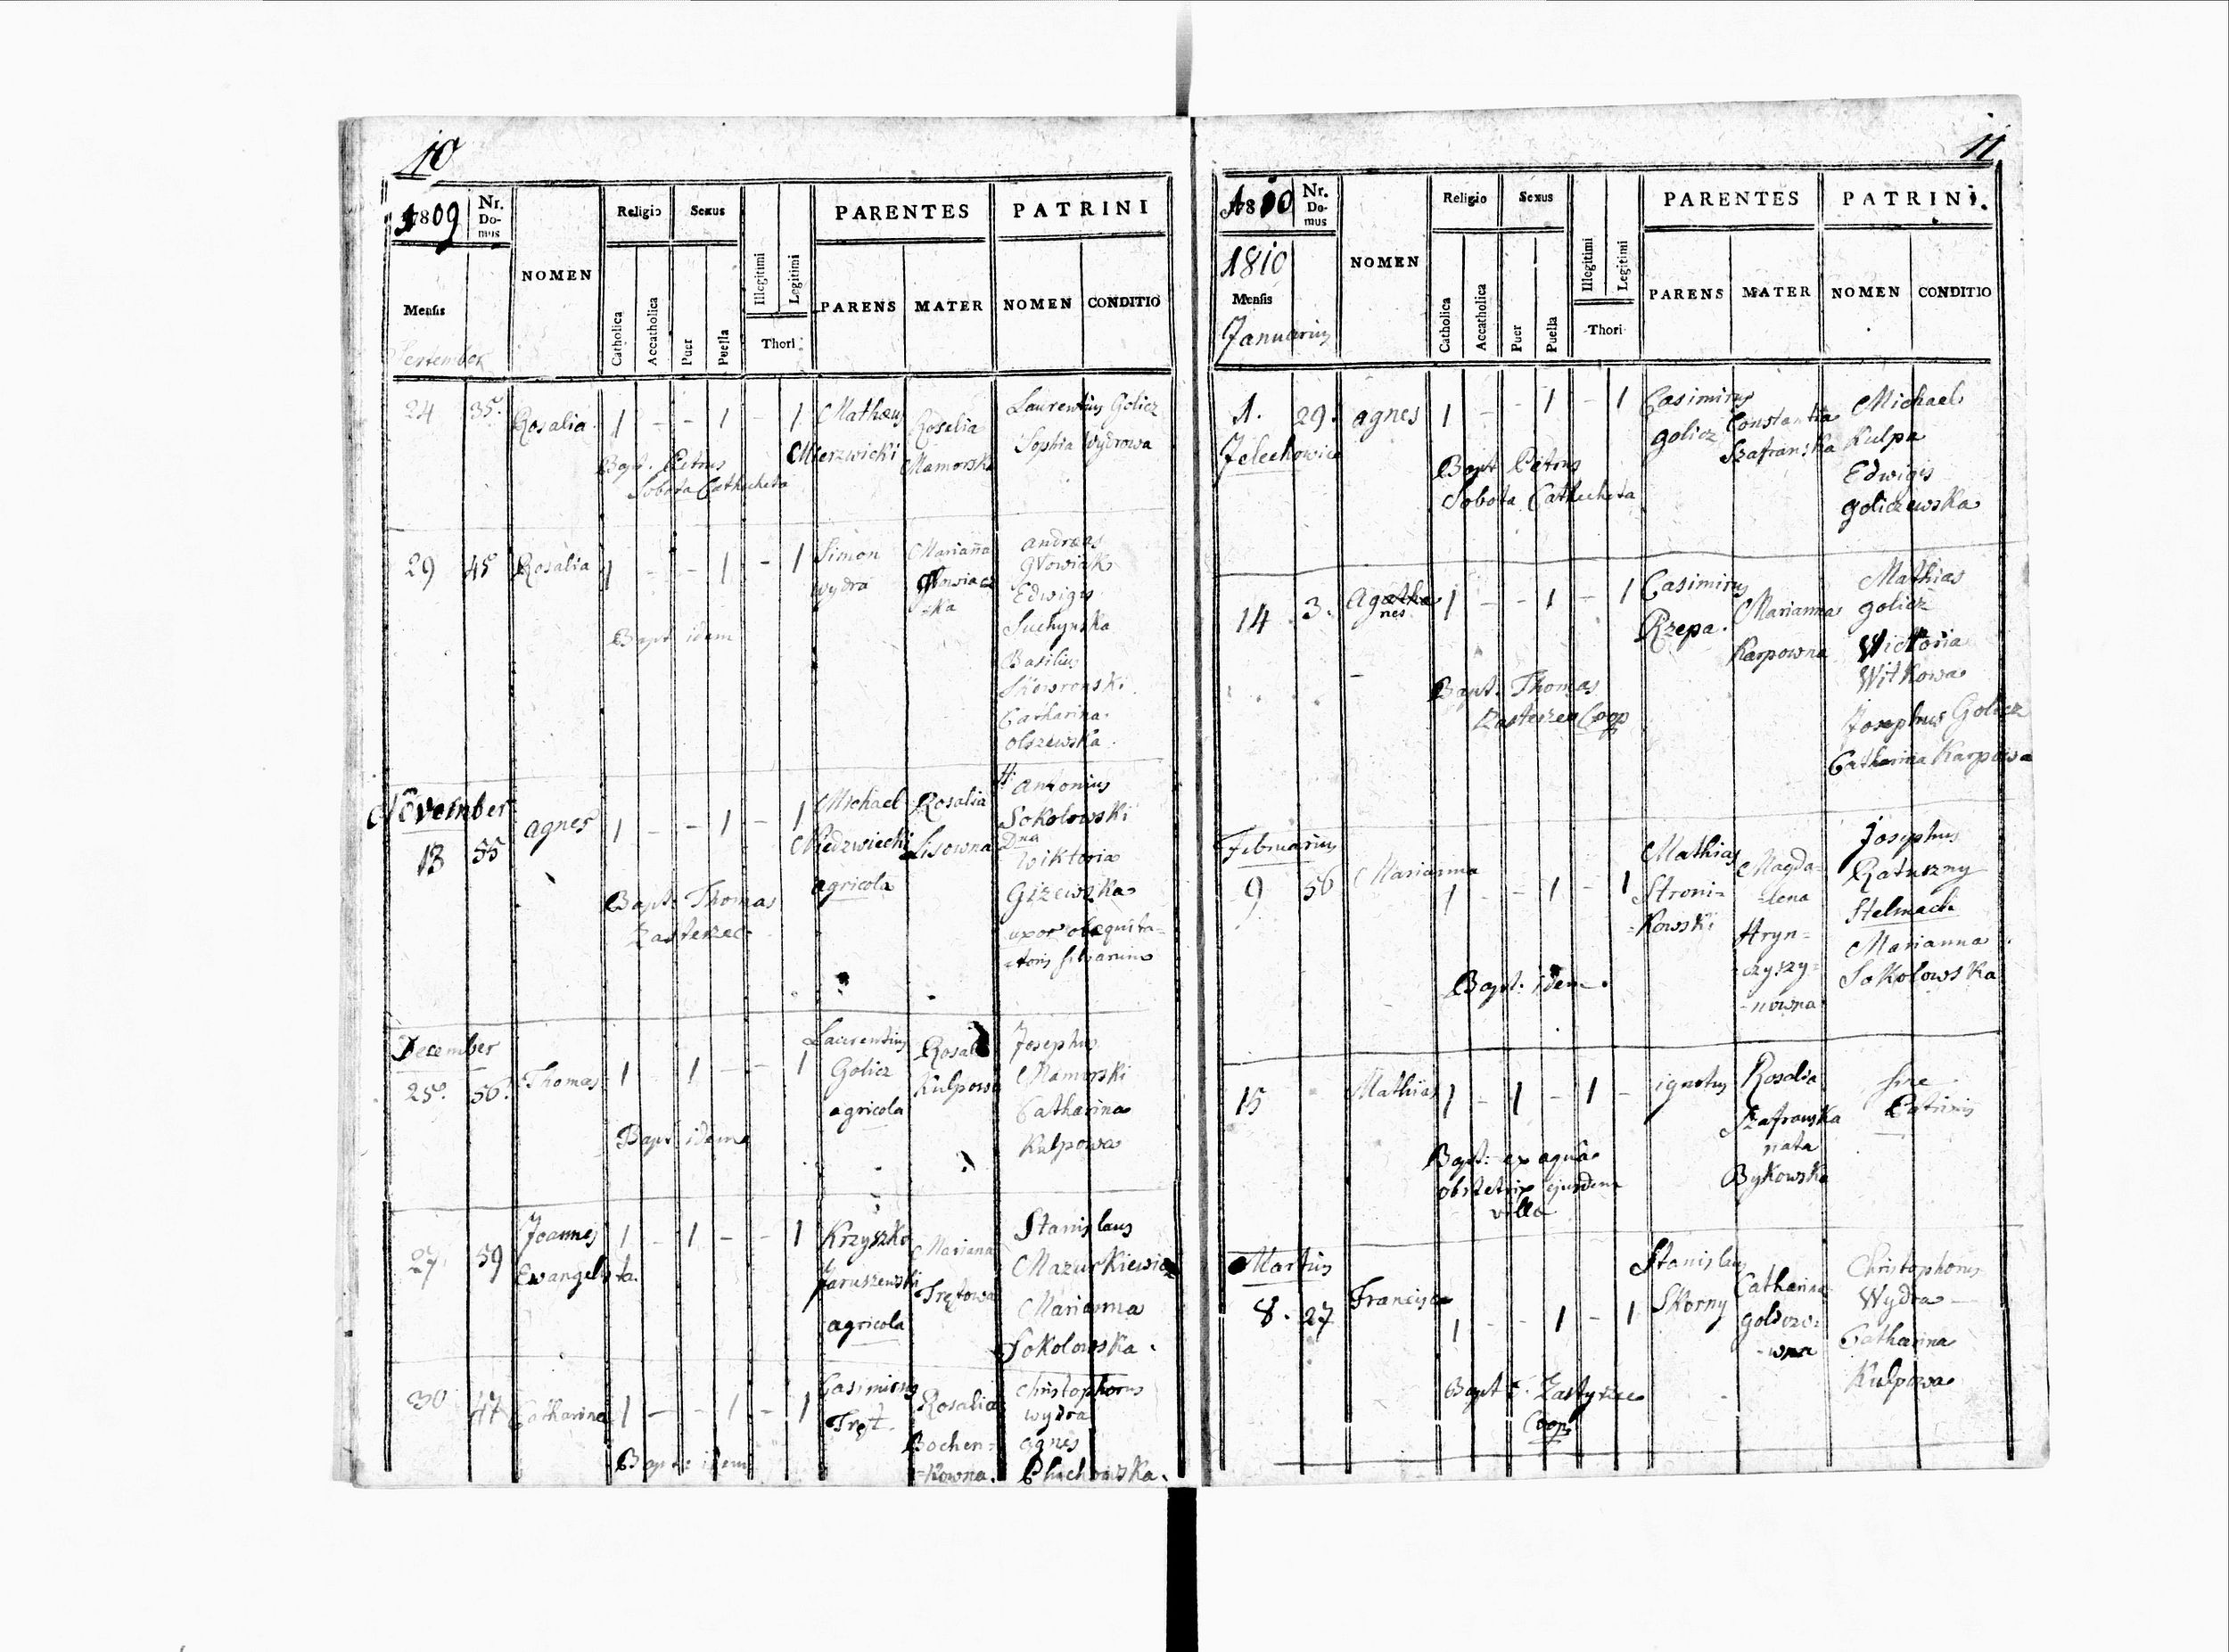 10
1809 Nr. Domus NOMEN Religio Sexus PARENTES PATRINI
Mensis Catholica Accatholica Puer Puella Illegitimi Legitimi Thori PARENS MATER NOMEN CONDITIO
September
24 35. Rosalia 1 - - 1 - 1 Mathæus Rosalia Laurentius Golicz
Mierzwicki Mamorska Sophia Wydrowa
Bapt. Petrus
Sobota Cathecheta
29 45 Rosalia 1 - - 1 - 1 Simon Marianna Andreas
wydra Głowiacz Głowiak
-ka Edwigis
Suchynska
Bapt. idem
Basilius
Skowronski
Catharina
Olszewska
November
18 55 Agnes 1 - - 1 - 1 Michael Rosalia Antonius
Niedzwiecki Lisowna Sokolowski
agricola Dna
Wiktoria
Bapt. Thomas Gizewska
Zasterzec uxor
December
25. 56. Thomas 1 - 1 - - 1 Laurentius Rosalia Josephus
Golicz Kulpowa Mamorski
agricola Catharina
Bapt. idem Kulpowa
27. 59 Joannes 1 - 1 - - 1 Krzyszko Mariana Stanislaus
Ewangelista. Jaruszewski Trętowa Mazurkiewicz
agricola Marianna
Sokolowska.
30 47 Catharina 1 - - 1 - 1 Casimirus Rosalia Christophorus
Tręt. Bochen= wydra
=kowna. agnes
Bapt: idem Plichowska.
11
1810 Nr. Domus NOMEN Religio Sexus PARENTES PATRINI.
1810
Mensis Catholica Accatholica Puer Puella Illegitimi Legitimi Thori PARENS MATER NOMEN CONDITIO
Januarius
1. 29. Agnes 1 - - 1 - 1 Casimirus Constantia Michael
Jelechowice golicz Szafranska Kulpa
Bapt. Petrus Edwigis
Sobota Cathecheta goliczewska
14 3. Agatha 1 - - 1 - 1 Casimirus Marianna Mathias
nes Rzepa. Karpowna golicz
Wictoria
Bapt. Thomas Witkowa
Zasterzec Coop Josephus Golicz
Catharina Karpowa
Februarius
9 56 Marianna 1 - - 1 - 1 Mathias Magda- Josephus
Stroni= -lena Ratuszny
=kowski Hryn= Stelmach
-czyszy= Marianna
Bapt. idem. -nowna Sokolowska
15 Mathias 1 - 1 - 1 - ignotus Rosalia sine
Szafranska Patrinis
nata
Bapt: ex aqua Bykowska
obstetrix ejusdem
villæ
Martius
8. 27 Francisca 1 - - 1 - 1 Stanislaus Catharina Christophorus
Skorny Wydra
-wna Catharina
Bapt T. Zastyrzec Kulpowa
Coop